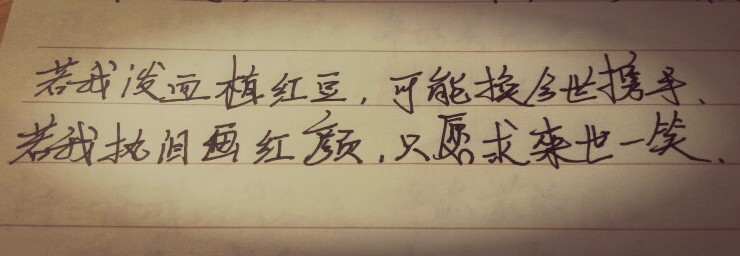 若我泼血植红豆，可能换今世携手、
若我执泪画红颜，只愿求来世一笑、